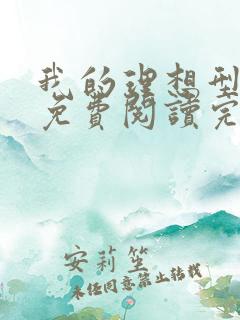 我的理想型
免費閱讀完
安莉笙
未经同意禁止转载